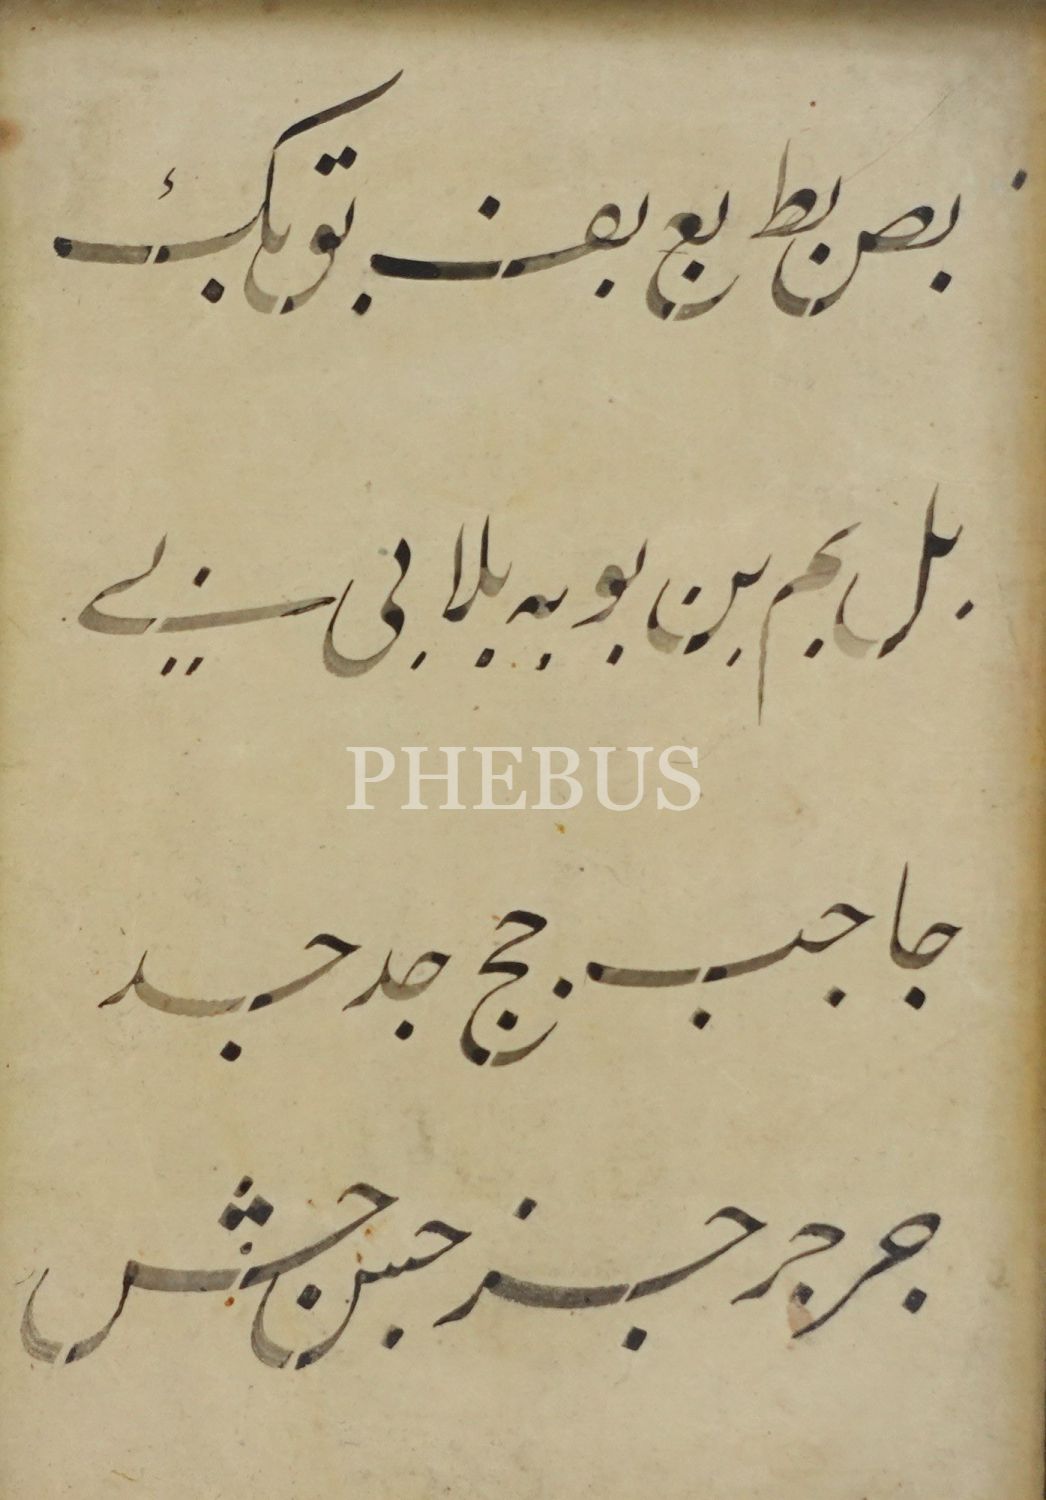 بص بط بع بف بق بك
بل بم بن بو به بلا بى بے
PHEBUS
جا جب جج جد جد
جر جر جز جس جش